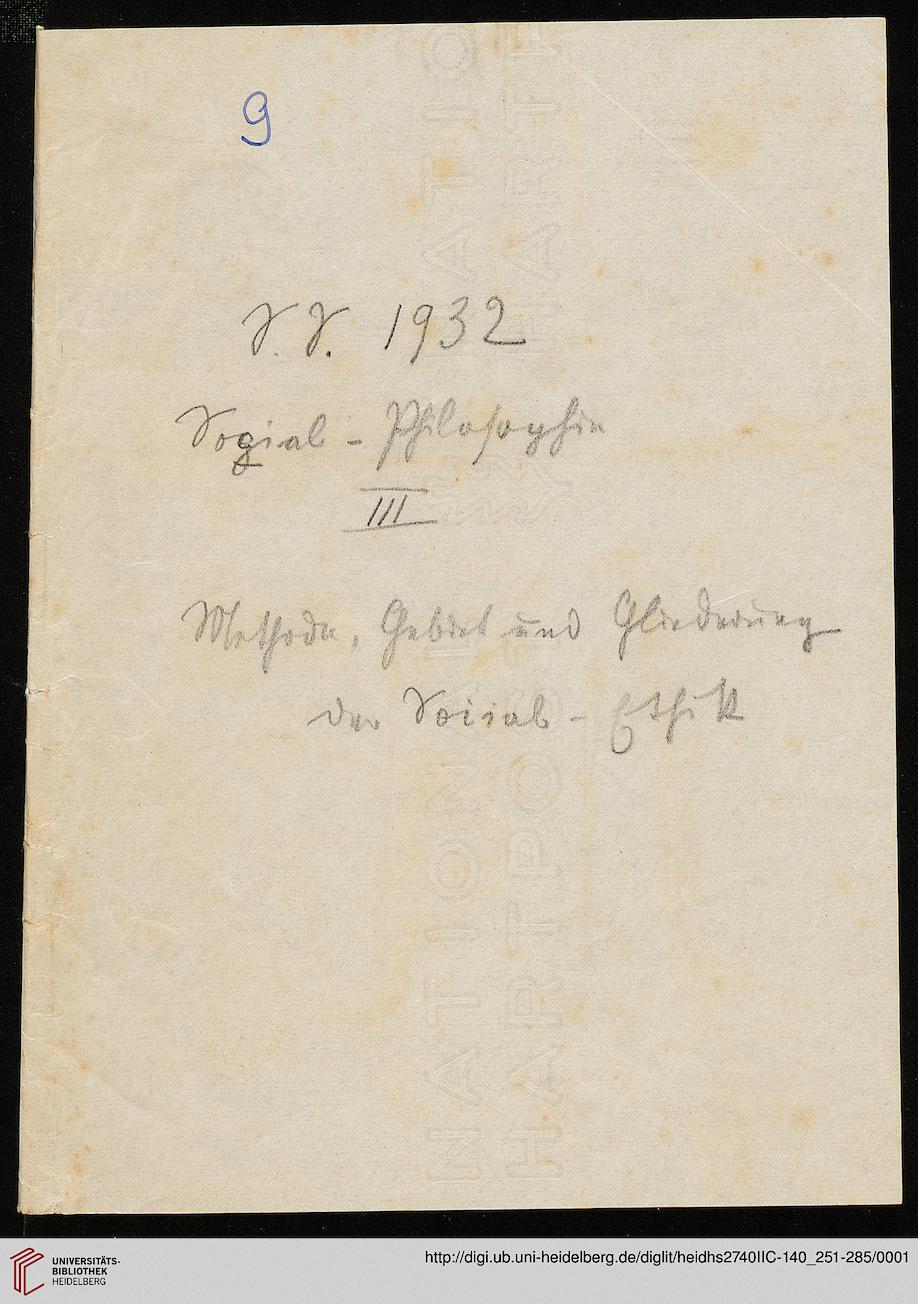 9
S. S. 1932
Sozial - Philosophie
III
Methode, Gebiet und Gliederung
der Sozial - Ethik
NATIONAL
HARTPOST
UNIVERSITÄTS-
BIBLIOTHEK
HEIDELBERG
http://digi.ub.uni-heidelberg.de/diglit/heidhs2740IIC-140_251-285/0001